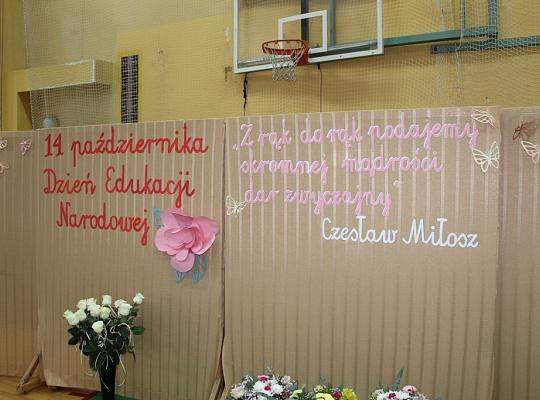 14 października
Dzień Edukacji
Narodowej
„Z rąk do rąk podajemy
skromnej mądrości
dar zwyczajny"
Czesław Miłosz